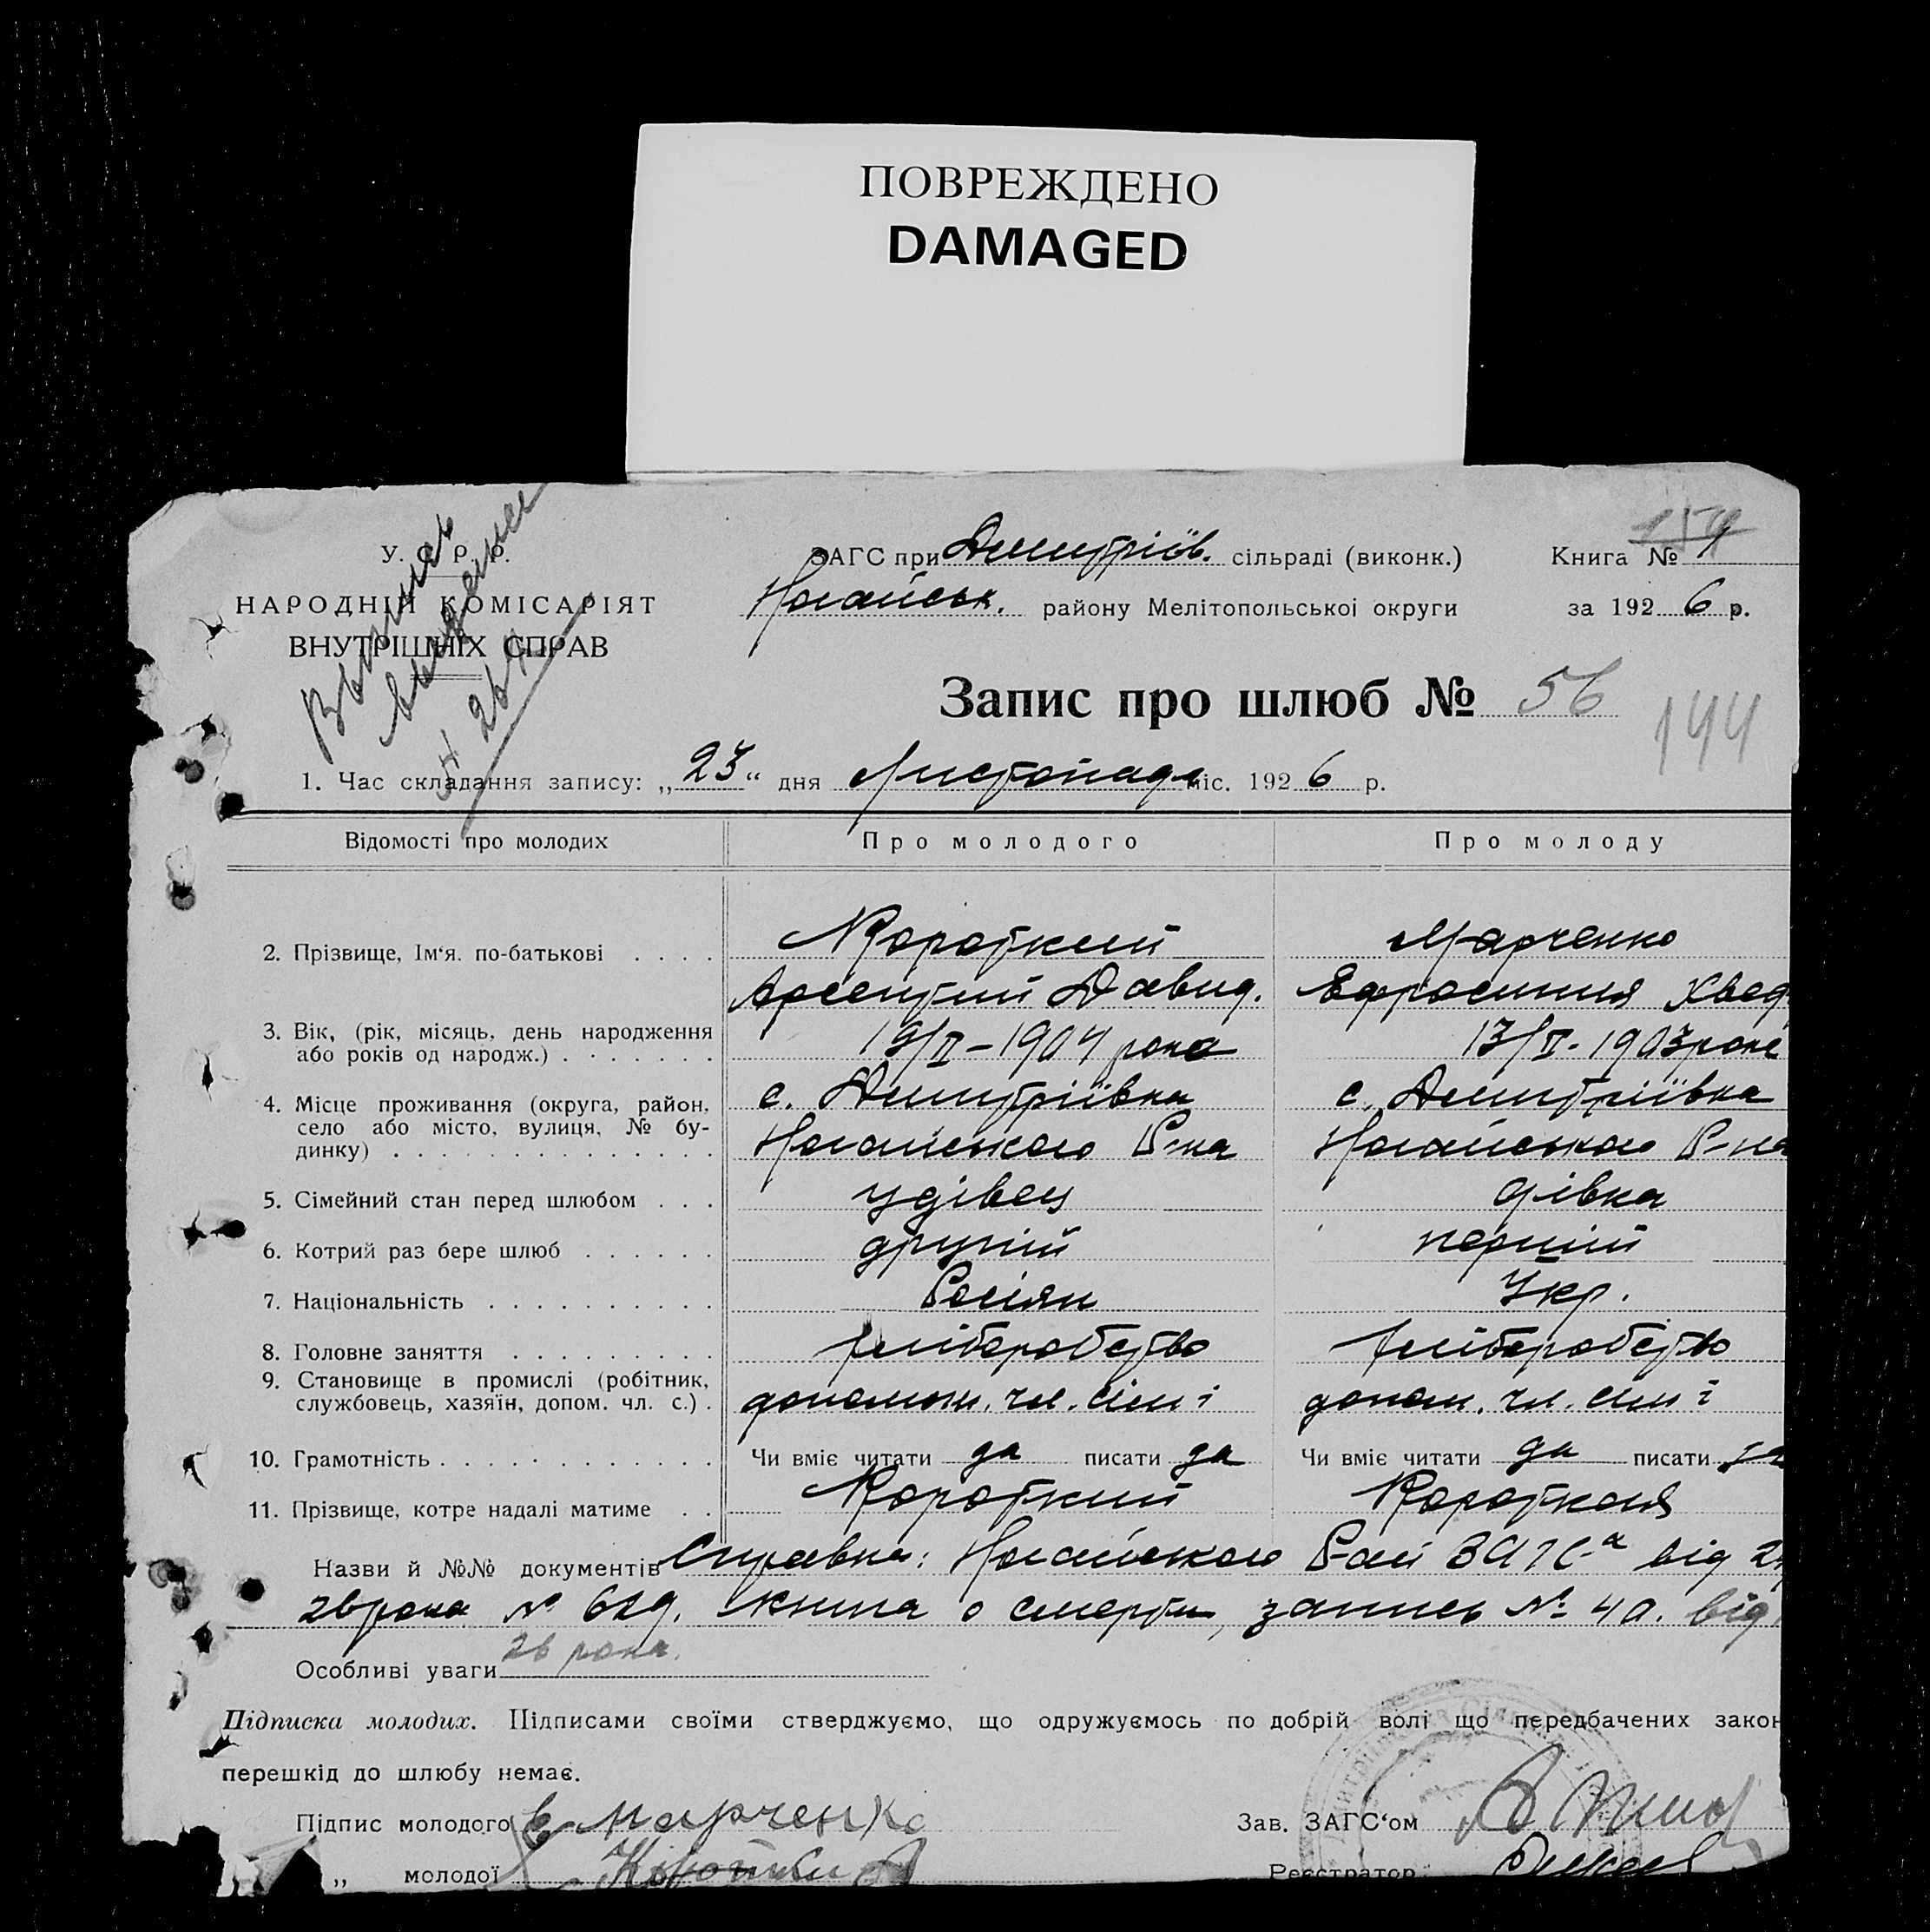 ПОВРЕЖДЕНО
DAMAGED
У. С. Р. Р.
НАРОДНІЙ КОМІСАРІЯТ
ВНУТРІШНІХ СПРАВ
ЗАГС при Дмитріїв. сільраді (виконк.)
Ногайськ. району Мелітопольської округи
Книга № 1
за 1926 р.
Запис про шлюб № 56
144
1. Час складання запису: „23“ дня Листопада міс. 1926 р.
Відомості про молодих Про молодого Про молоду
2. Прізвище, Ім‘я. по-батькові . . . . Короткий Марченко
Арсентий Давид. Ефросиния Хвед
3. Вік, (рік, місяць, день народження
або років од народж.) . . . . . . . 19/II-1904 рока 13/II-1903 роке
4. Місце проживання (округа, район,
село або місто, вулиця, № бу-
динку) . . . . . . . . . . . . . .
с. Дмитріївка с. Дмитріївка
Ногайського Р-на Ногайського Р-на
5. Сімейний стан перед шлюбом . . . удівец дівка
6. Котрий раз бере шлюб . . . . . . другий перший
7. Національність . . . . . . . . . . Росіян Укр.
8. Головне заняття . . . . . . . . . хліборобство хліборобство
9. Становище в промислі (робітник,
службовець, хазяїн, допом. чл. с.) . допомож. чл. сім'ї допом. чл. сім'ї
10. Грамотність . . . . . . . . . . . . Чи вміє читати да писати да Чи вміє читати да писати да
11. Прізвище, котре надалі матиме . . Короткий Короткая
Назви й №№ документів Справка: Ногайського Рай ЗАГС-а від
26 рока № 629. книга о смерти, запись № 40. від
26 рока.
Особливі уваги
Підписка молодих. Підписами своїми стверджуємо, що одружуємось по добрій волі що передбачених закон
перешкід до шлюбу немає.
Підпис молодого Е Марченко Зав. ЗАГС‘ом
„ молодої Реєстратор